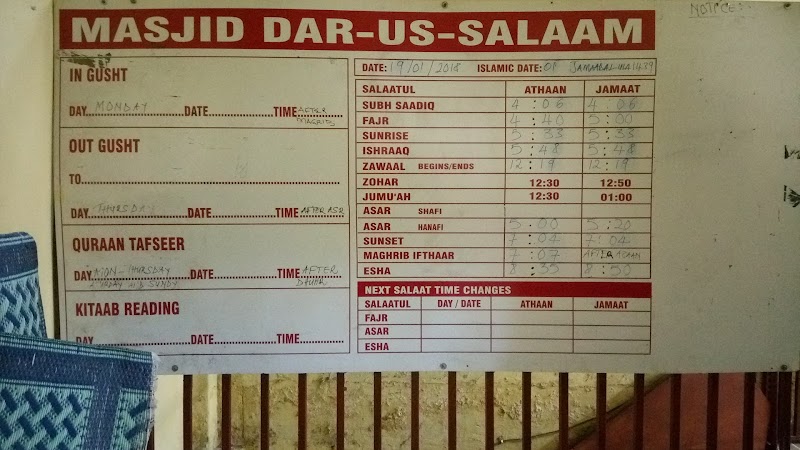 NOTICES
MASJID DAR-US-SALAAM
IN GUSHT
DAY MONDAY DATE TIME AFTER
MAGRIB
OUT GUSHT
TO
DAY THURSDAY DATE TIME AFTER ASR
QURAAN TAFSEER
DAY MON-THURSDAY DATE TIME AFTER
KITAAB READING
DAY DATE TIME
DATE: 19/01/2018 ISLAMIC DATE: 01 1439
SALAATUL ATHAAN JAMAAT
SUBH SAADIQ 4:06 4:06
FAJR 4:40 5:00
SUNRISE 5:33 5:33
ISHRAAQ 5:48 5:48
ZAWAAL BEGINS/ENDS 12:19 12:19
ZOHAR 12:30 12:50
JUMU'AH 12:30 01:00
ASAR SHAFI
ASAR HANAFI 5:00 5:20
SUNSET 7:04 7:04
MAGHRIB IFTHAAR 7:07 AFTER ADAAN
ESHA 8:35 8:50
NEXT SALAAT TIME CHANGES
SALAATUL DAY / DATE ATHAAN JAMAAT
FAJR
ASAR
ESHA